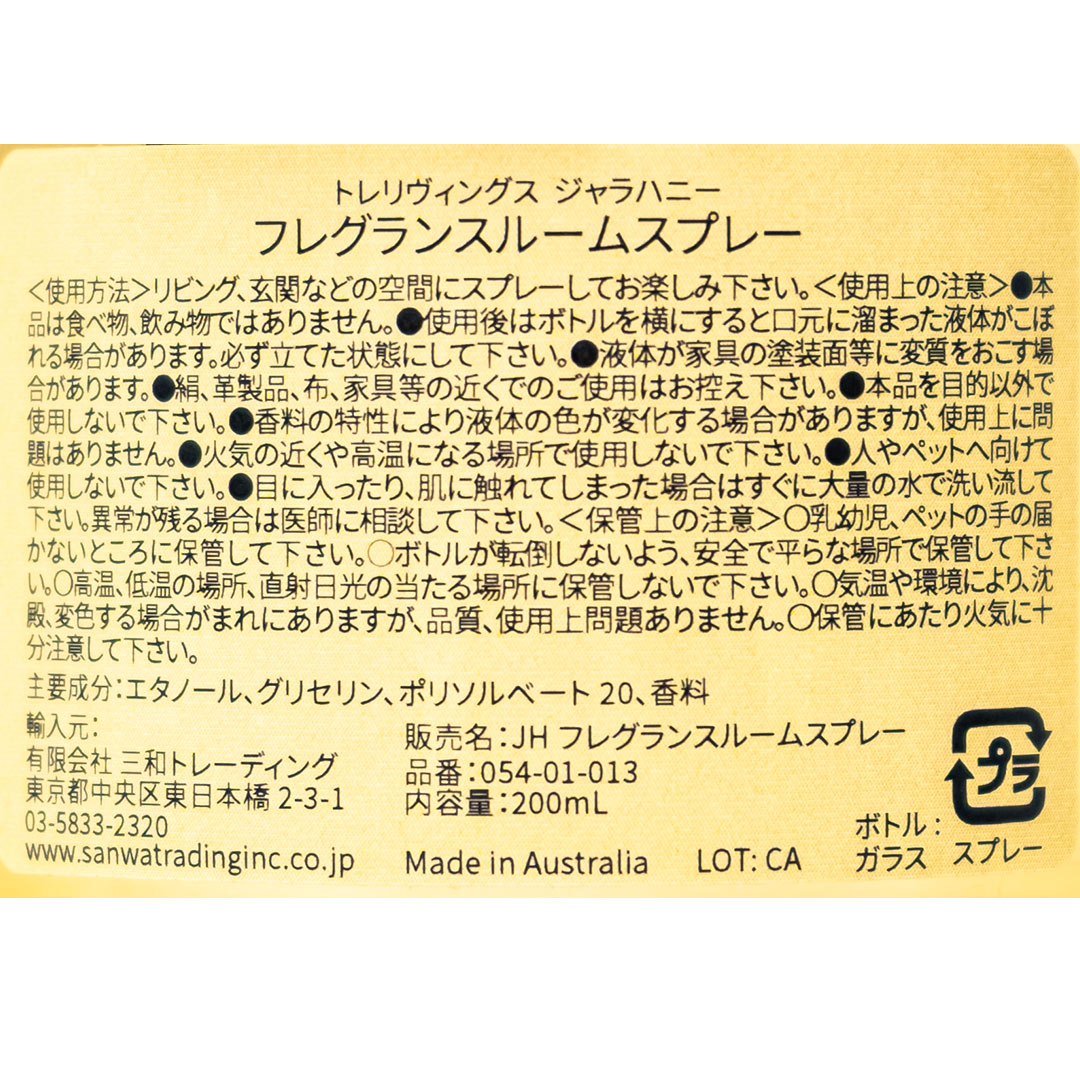 トレリヴィングス ジャラハニー
フレグランスルームスプレー
＜使用方法＞リビング、玄関などの空間にスプレーしてお楽しみ下さい。＜使用上の注意＞●本
品は食べ物、飲み物ではありません。●使用後はボトルを横にすると口元に溜まった液体がこぼ
れる場合があります。必ず立てた状態にして下さい。●液体が家具の塗装面等に変質をおこす場
合があります。●絹、革製品、布、家具等の近くでのご使用はお控え下さい。●本品を目的以外で
使用しないで下さい。●香料の特性により液体の色が変化する場合がありますが、使用上に問
題はありません。●火気の近くや高温になる場所で使用しないで下さい。●人やペットへ向けて
使用しないで下さい。●目に入ったり、肌に触れてしまった場合はすぐに大量の水で洗い流して
下さい。異常が残る場合は医師に相談して下さい。＜保管上の注意＞○乳幼児、ペットの手の届
かないところに保管して下さい。○ボトルが転倒しないよう、安全で平らな場所で保管して下さ
い。○高温、低温の場所、直射日光の当たる場所に保管しないで下さい。○気温や環境により、沈
殿、変色する場合がまれにありますが、品質、使用上問題ありません。○保管にあたり火気に十
分注意して下さい。
主要成分：エタノール、グリセリン、ポリソルベート 20、香料
輸入元：
有限会社 三和トレーディング
東京都中央区東日本橋 2-3-1
03-5833-2320
www.sanwatradinginc.co.jp
販売名：JH フレグランスルームスプレー
品番：054-01-013
内容量：200mL
Made in Australia
LOT: CA
ボトル：
ガラス
プラ
スプレー